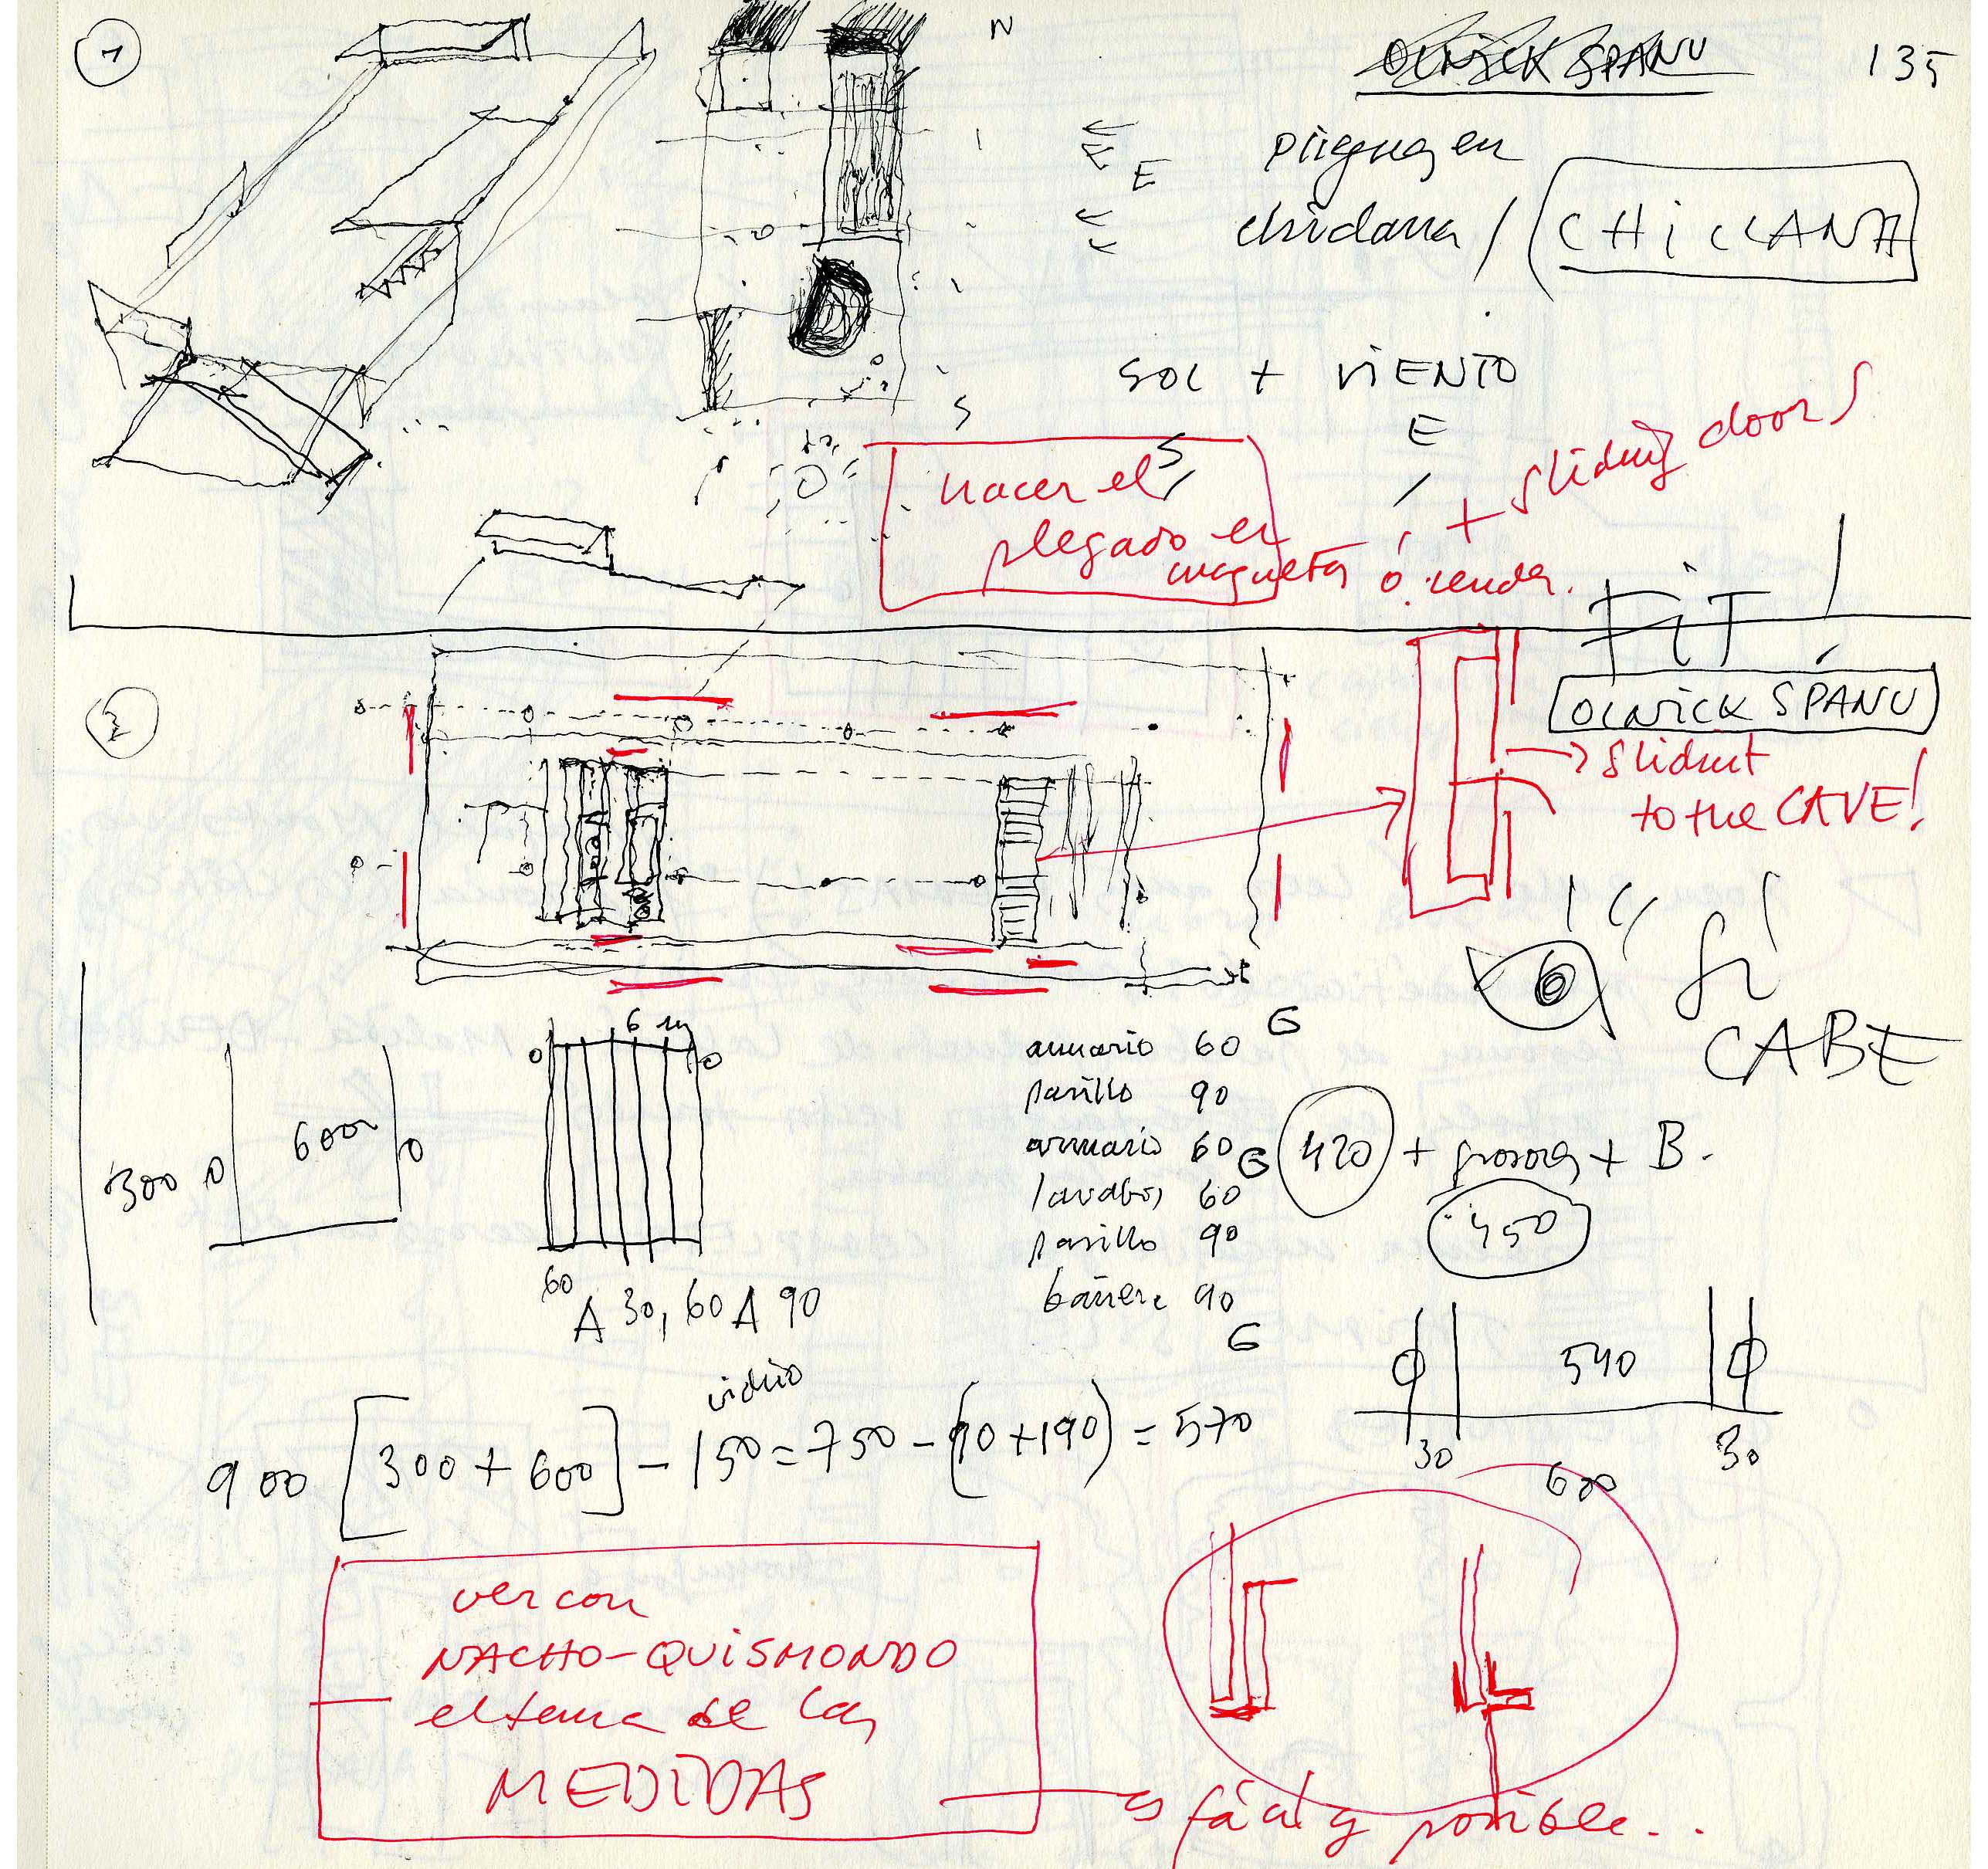 1
N
OLNICK SPANU
135
E
/ CHICLANA
SOL + VIENTO
S
E
S
hacer el
plegado en
maqueta ó render.
+ sliding doors
FIT
2
OLNICK SPANU
to the CAVE!
sí
CABE
6 m
300
600
armario 60 G
pasillo 90
armario 60 G
lavabos 60
pasillo 90
bañera 90
G
420 + grosores + B.
450
60 A 30, 60 A 90
vidrio
900 [300 + 600] - 150 = 750 - (90 + 190) = 570
540
30
30
600
ver con
NACHO-QUISMONDO
el tema de las
MEDIDAS
es fácil y posible..